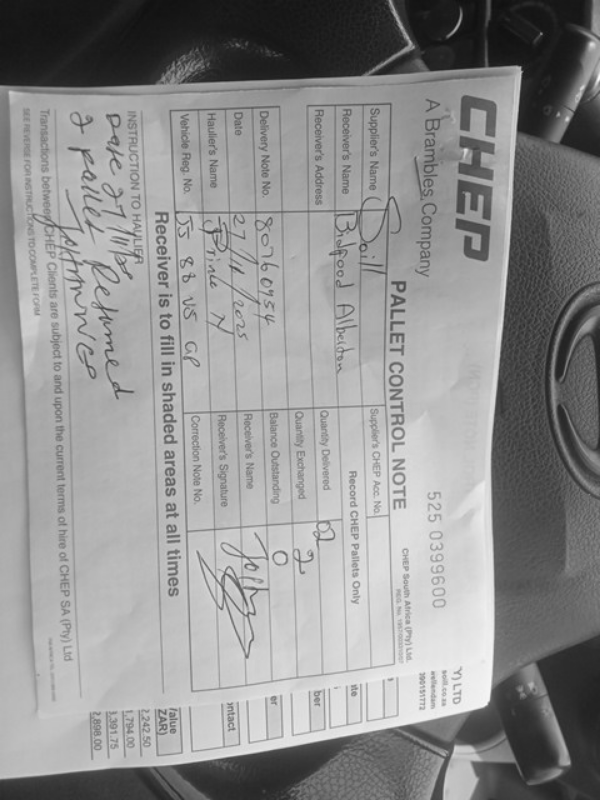 CHEP
A Brambles Company
PALLET CONTROL NOTE
525 0399600
CHEP South Africa (Pty) Ltd.
Supplier's Name Soill
Supplier's CHEP Acc. No.
Receiver's Name Bidfood Alberton
Record CHEP Pallets Only
Receiver's Address
Quantity Delivered 02
Quantity Exchanged 2
Delivery Note No. 80760954
Balance Outstanding 0
Date 27/11/2025
Receiver's Name John
Haulier's Name Prince N
Receiver's Signature
Vehicle Reg. No. JS 88 VS GP
Correction Note No.
Receiver is to fill in shaded areas at all times
INSTRUCTION TO HAULIER
Date 27/11/25
2 pallet Returned
Transactions between CHEP Clients are subject to and upon the current terms of hire of CHEP SA (Pty) Ltd
SEE REVERSE FOR INSTRUCTIONS TO COMPLETE FORM
Y) LTD
soill.co.za
wellendam
390151772
ate
ber
er
ontact
Value
ZAR)
2,242.50
1,794.00
3,391.75
2,898.00